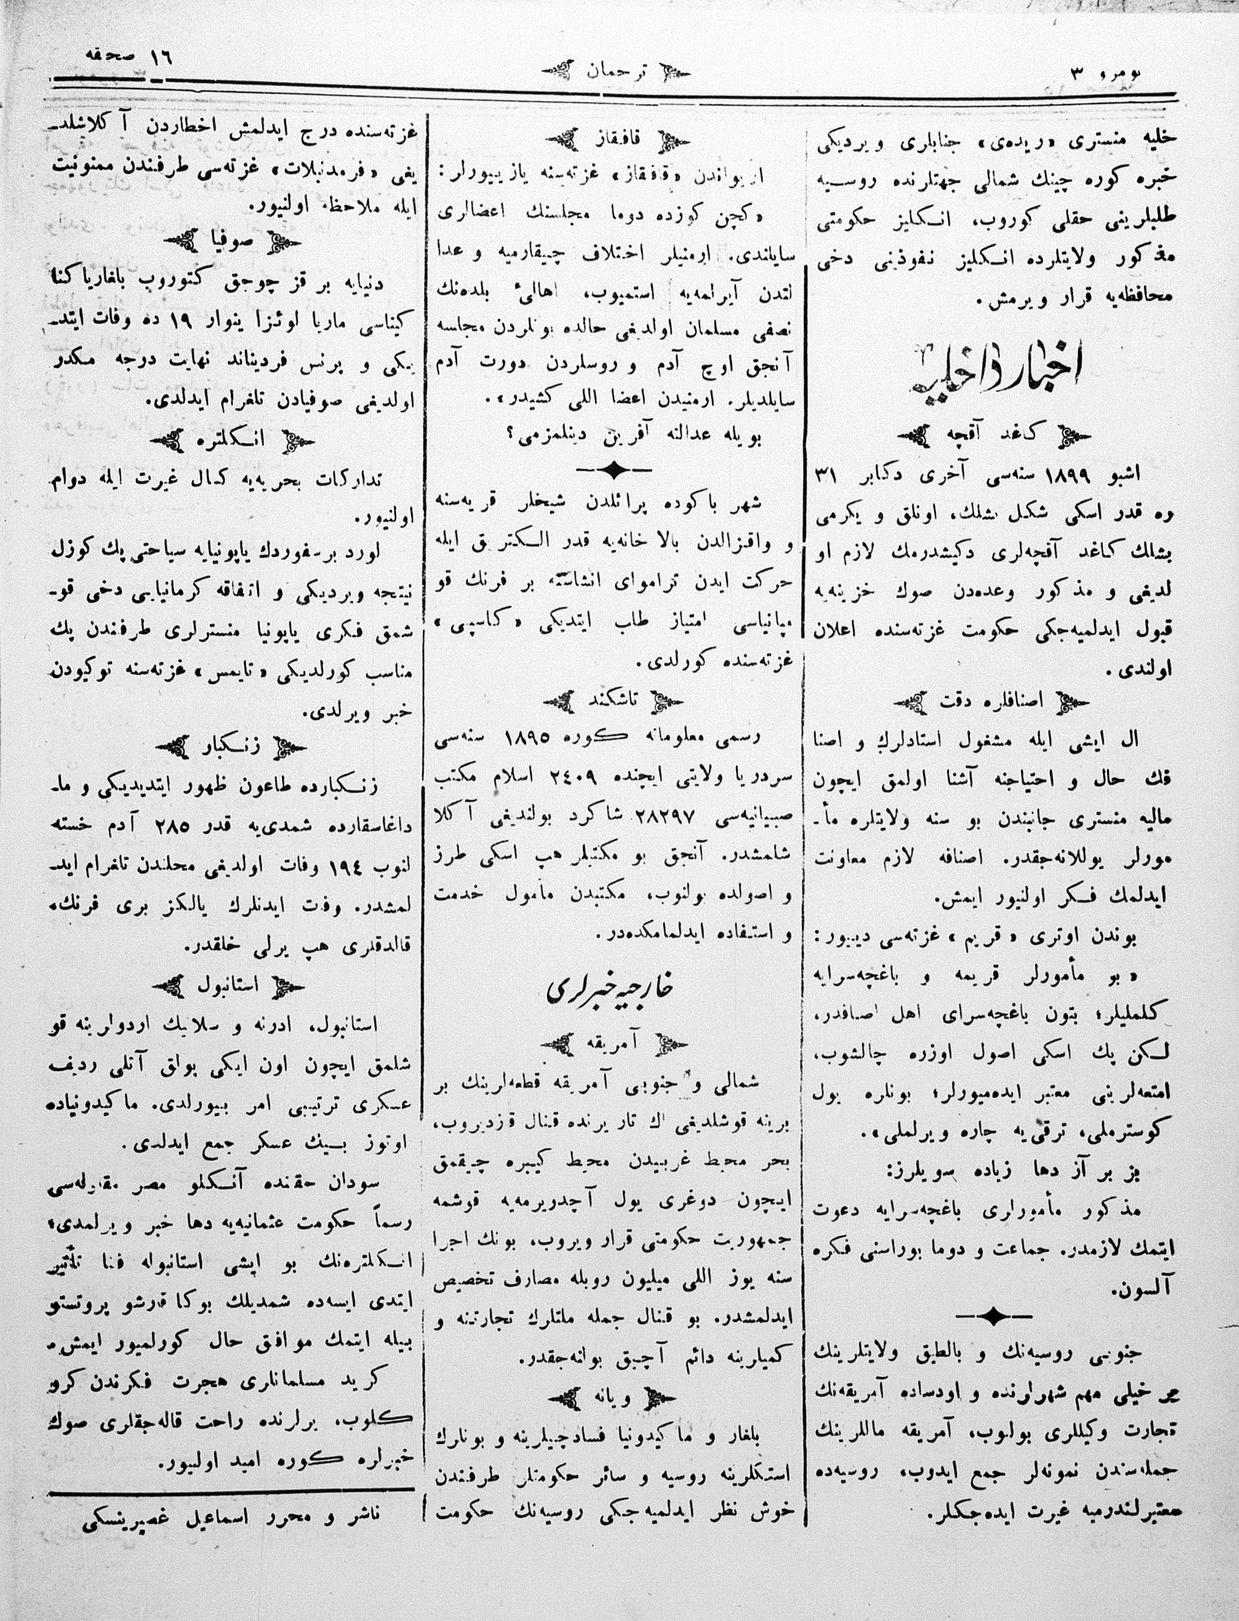 نومرو ٣
ترجمان
١٦ صحیفه
خلیه منستری «ریده‌ی» جنابلری ویردیکی
خبره کوره چینك شمالی جهتلرنده روسیه
طلبلرینی حقلی کوروب، انکلیز حکومتی
مذکور ولایتلرده انکلیز نفوذینی دخی
محافظه‌یه قرار ویرمش.
اخبار داخلیه
کاغد آقچه
اشبو ١٨٩٩ سنه‌سی آخری دکابر ٣١
ره قدر اسکی شکل بشلك، اونلق و یکرمی
بشلك کاغد آقچه‌لری دکیشدرمك لازم او
لدیغی و مذکور وعده‌دن صوك خزینه‌یه
قبول ایدلمیه‌جکی حکومت غزته‌سنده اعلان
اولندی.
اصنافلره دقت
ال ایشی ایله مشغول استادلرك و اصنا
فك حال و احتیاجنه آشنا اولمق ایچون
مالیه منستری جانبندن بو سنه ولایتلره مأ-
مورلر یوللانه‌جقدر. اصنافه لازم معاونت
ایدلمك فکر اولنیور ایمش.
بوندن اوتری «قریم» غزته‌سی دییور:
«بو مأمورلر قریمه و باغچه‌سرایه
کلملیلر؛ بتون باغچه‌سرای اهل اصنافدر،
لکن پك اسکی اصول اوزره چالشوب،
امتعه‌لرینی معتبر ایده‌میورلر؛ بونلره یول
کوسترملی، ترقی‌یه چاره ویرلملی».
بز بر آز دها زیاده سویلرز:
مذکور مأمورلری باغچه‌سرایه دعوت
ایتمك لازمدر. جماعت و دوما بوراسنی فکره
آلسون.
جنوبی روسیه‌نك و بالطیق ولایتلرینك
خیلی مهم شهرلرنده و اودساده آمریقه‌نك
تجارت وکیللری بولنوب، آمریقه ماللرینك
جمله‌سندن نمونه‌لر جمع ایدوب، روسیه‌ده
معتبرلندرمیه غیرت ایده‌جکلر.
قافقاز
اریواندن «قافقاز» غزته‌سنه یازییورلر:
«کچن کوزده دوما مجلسنك اعضالری
سایلندی. ارمنیلر اختلاف چیقارمیه و عدا
لتدن آیرلمه‌یه استمیوب، اهالیٔ بلده‌نك
نصفی مسلمان اولدیغی حالده بونلردن مجلسه
آنجق اوچ آدم و روسلردن دورت آدم
سایلدیلر. ارمنیدن اعضا اللی کشیدر».
بویله عدالته آفرین دینلمزمی؟
شهر باکوده پرائلدن شیخلر قریه‌سنه
و واقزالدن بالاخانه‌یه قدر الکتریق ایله
حرکت ایدن تراموای انشاسنه بر فرنك قو
مپانیاسی امتیاز طلب ایتدیکی «کاسپی»
غزته‌سنده کورلدی.
تاشکند
رسمی معلوماته کوره ١٨٩٥ سنه‌سی
سردریا ولایتی ایچنده ٢٤٠٩ اسلام مکتب
صبیانیه‌سی ٢٨٢٩٧ شاکرد بولندیغی آکلا
شلمشدر. آنجق بو مکتبلر هپ اسکی طرز
و اصولده بولنوب، مکتبدن مأمول خدمت
و استفاده ایدلمامکده‌در.
خارجیه خبرلری
آمریقه
شمالی و جنوبی آمریقه قطعه‌لرینك بر
برینه قوشلدیغی اك تار یرنده قنال قزدیروب،
بحر محیط غربیدن محیط کبیره چیقمق
ایچون دوغری یول آچدیرمه‌یه قوشمه
جمهوریت حکومتی قرار ویروب، بونك اجرا
سنه یوز اللی میلیون روبله مصارف تخصیص
ایدلمشدر. بو قنال جمله ملتلرك تجارتنه و
کمیلرینه دائم آچیق بولنه‌جقدر.
ویانه
بلغار و ماکیدونیا فسادچیلرینه و بونلرك
استکلرینه روسیه و سائر حکومتلر طرفندن
خوش نظر ایدلمیه‌جکی روسیه‌نك حکومت
غزته‌سنده درج ایدلمش اخطاردن آکلاشلد-
یغی «فرمدنبلات» غزته‌سی طرفندن ممنونیت
ایله ملاحظه اولنیور.
صوفیا
دنیایه بر قز چوجق کتوروب بلغاریا کنا
کیناسی ماریا لوئزا ینوار ١٩ ده وفات ایتد-
یکی و پرنس فردیناند نهایت درجه مکدر
اولدیغی صوفیادن تلغرام ایدلدی.
انکلتره
تدارکات بحریه‌یه کمال غیرت ایله دوام
اولنیور.
لورد برسفوردك یاپونیایه سیاحتی پك کوزل
نتیجه ویردیکی و اتفاقه کرمانیایی دخی قو-
شمق فکری یاپونیا منسترلری طرفندن پك
مناسب کورلدیکی «تایمس» غزته‌سنه توکیودن
خبر ویرلدی.
زنکبار
زنکبارده طاعون ظهور ایتدیدیکی و ما-
داغاسقارده شمدی‌یه قدر ٢٨٥ آدم خسته
لنوب ١٩٤ وفات اولدیغی محلندن تلغرام اید-
لمشدر. وفت ایدنلرك یالکز بری فرنك،
قالدقلری هپ یرلی خلقدر.
استانبول
استانبول، ادرنه و سلانیك اردولرینه قو
شلمق ایچون اون ایکی بولق آتلی ردیف
عسکری ترتیبی امر بیورلدی. ماکیدونیاده
اوتوز بیك عسکر جمع ایدلدی.
سودان حقنده آنکلو مصر مقاوله‌سی
رسماً حکومت عثمانیه‌یه دها خبر ویرلمدی؛
انکلتره‌نك بو ایشی استانبوله فنا تأثیر
ایتدی ایسه‌ده شمدیلك بوکا قارشو پروتستو
بیله ایتمك موافق حال کورلمیور ایمش.
کرید مسلمانلری هجرت فکرندن کرو
کلوب، یرلرنده راحت قاله‌جقلری صوك
خبرلره کوره امید اولنیور.
ناشر و محرر اسماعیل غصپرینسکی